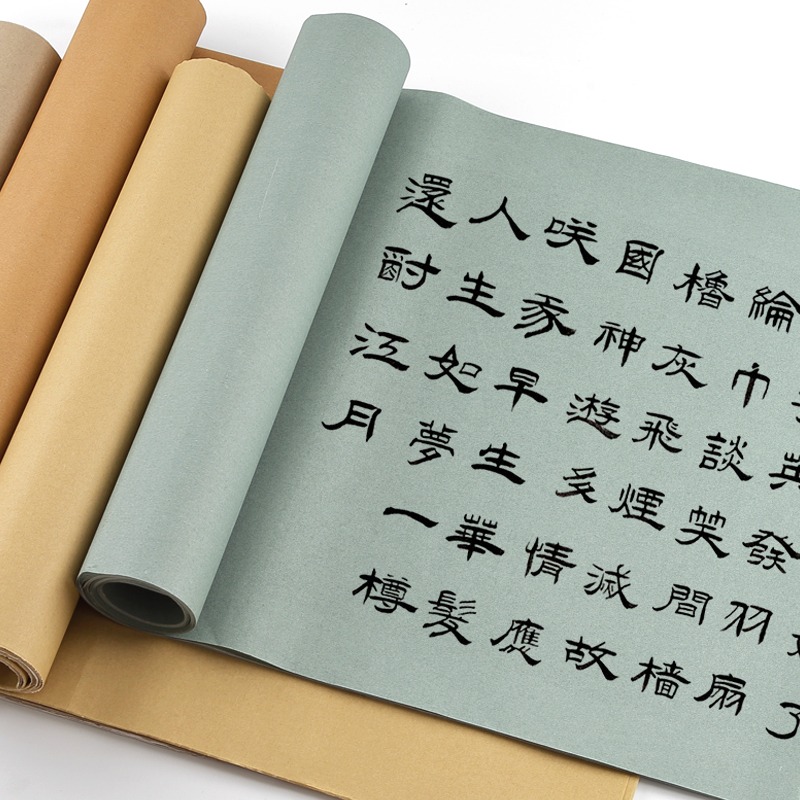 英發羽扇
綸巾談笑間檣
櫓灰飛煙滅故
國神遊多情應
咲我早生華髮
人生如夢一樽
還酹江月